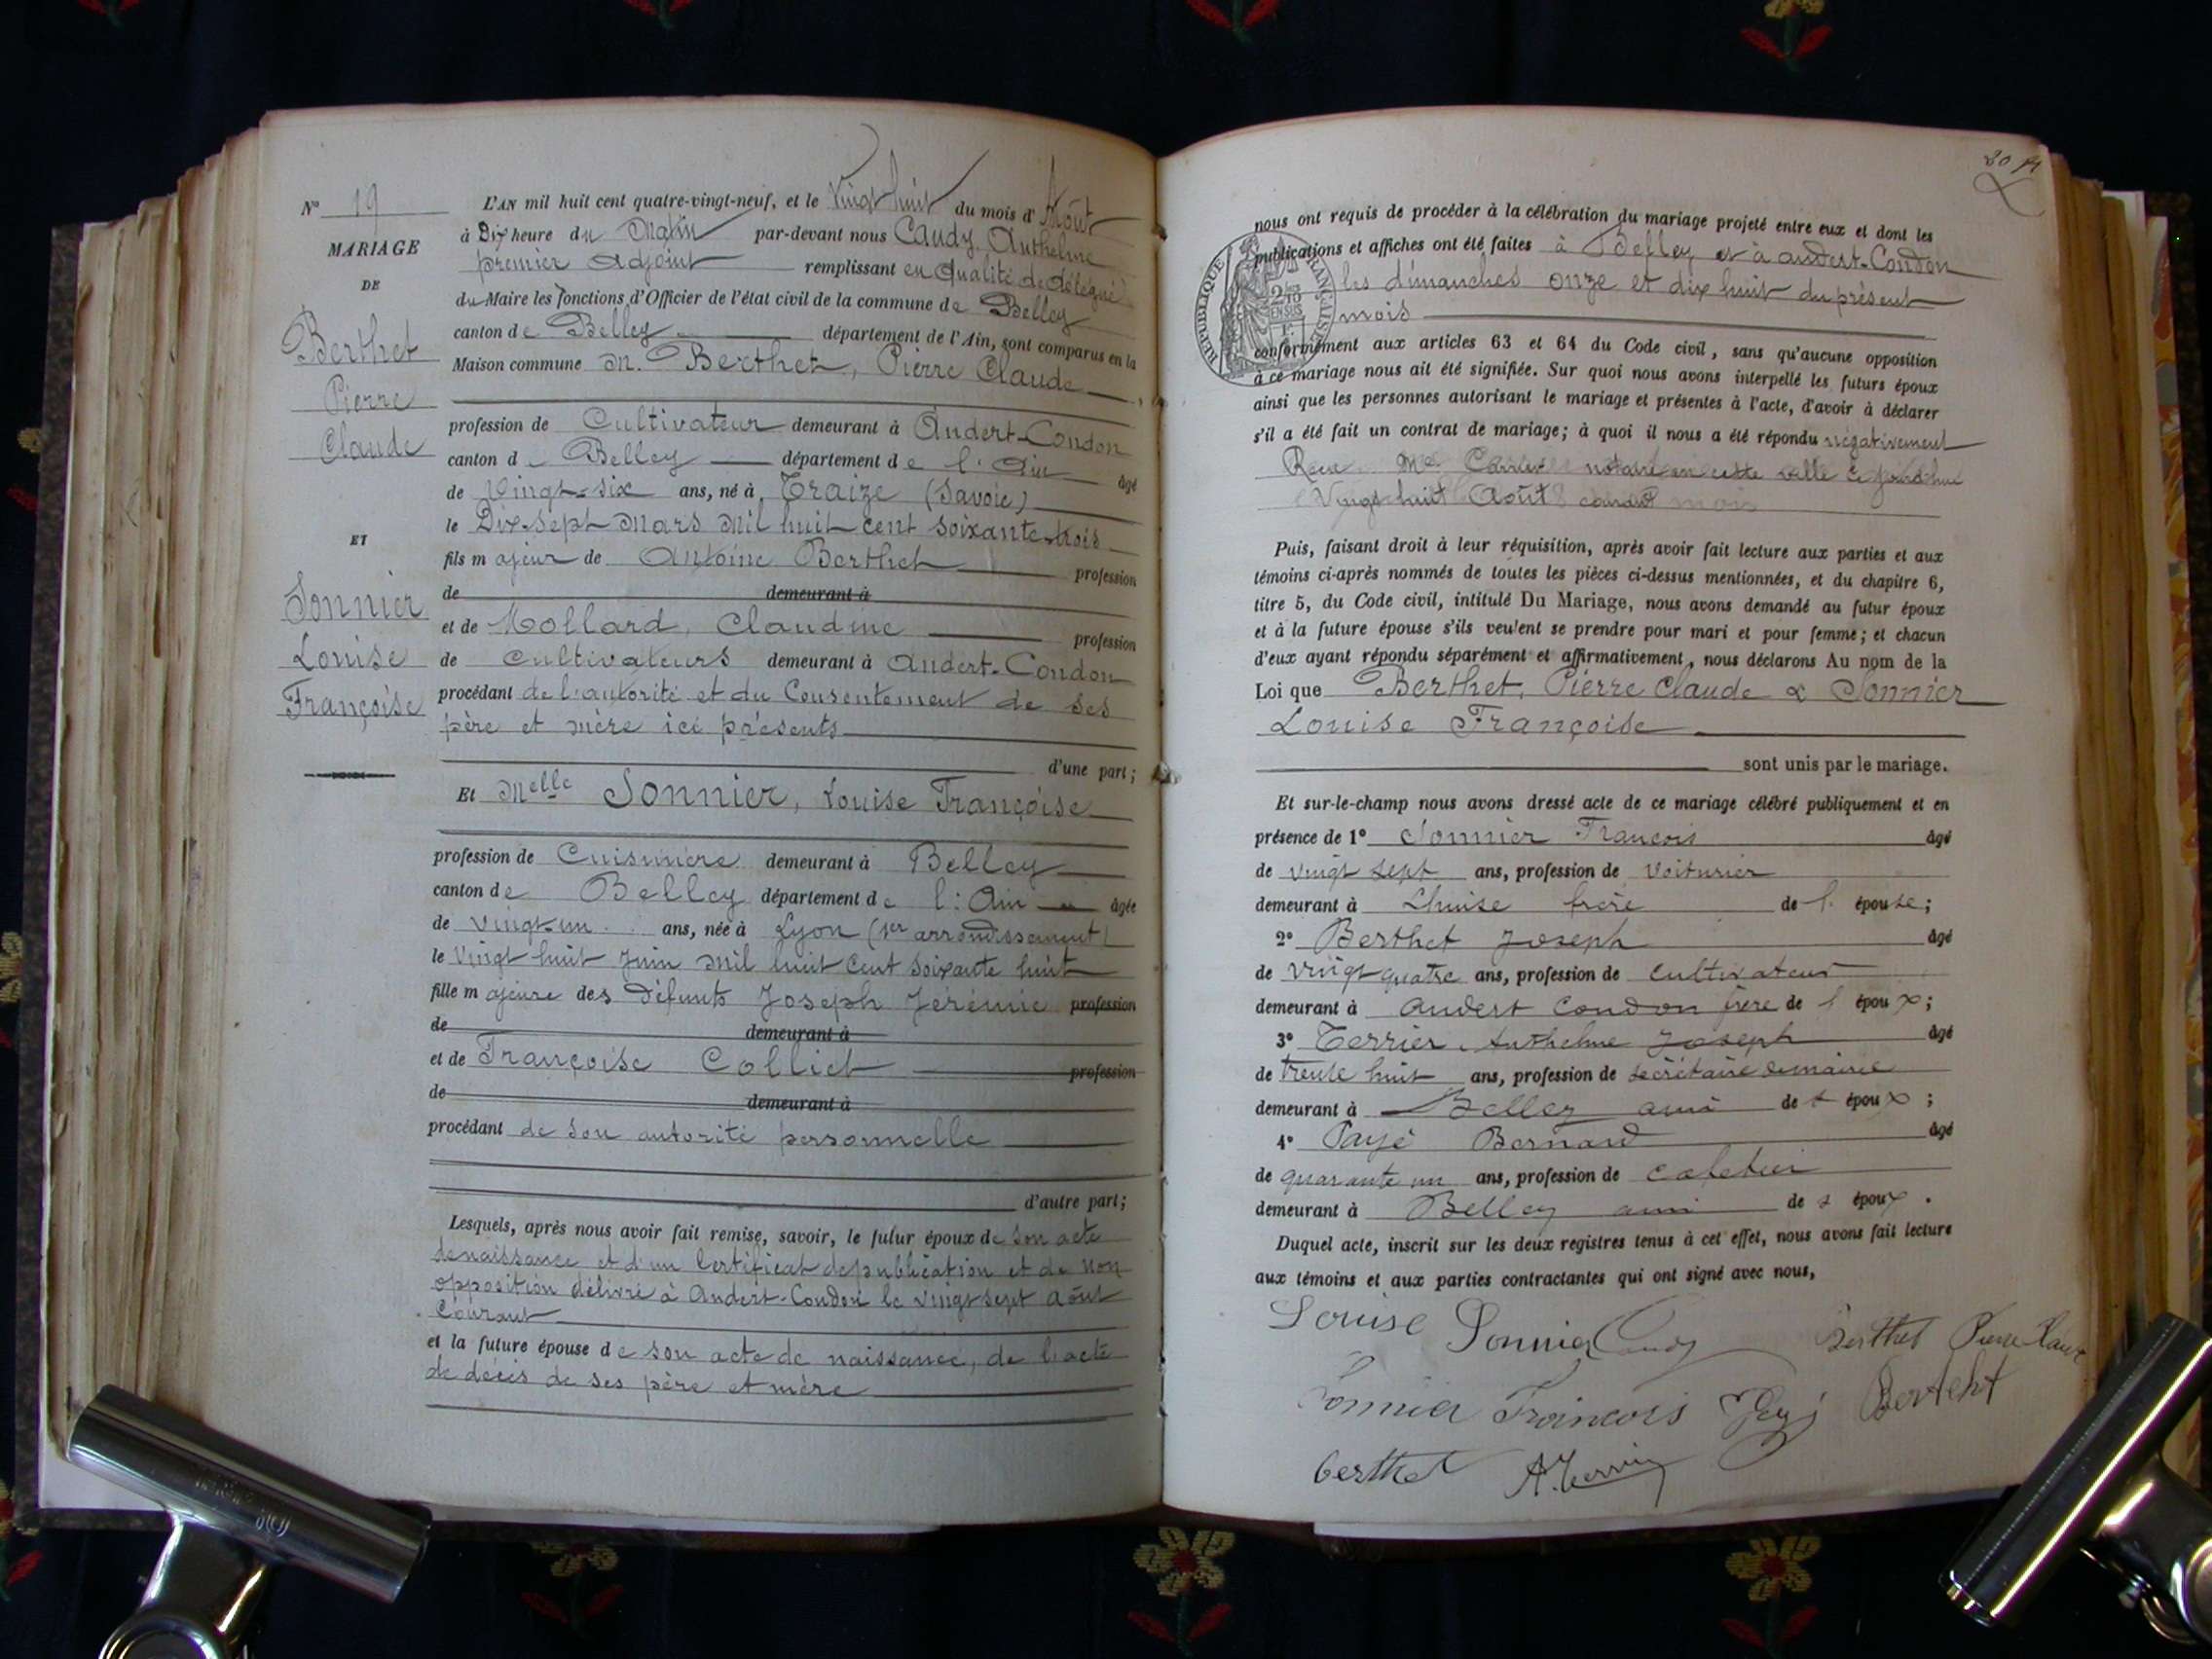 N° 19
MARIAGE
DE
Berthet
Pierre
Claude
ET
Sonnier
Louise
Françoise
L'AN mil huit cent quatre-vingt-neuf, et le Vingt huit du mois d'Août
à Dix heure du Matin par-devant nous Caudy, Anthelme
premier adjoint remplissant en qualité de délégué
du Maire les fonctions d'Officier de l'état civil de la commune de Belley
canton de Belley département de l'Ain, sont comparus en la
Maison commune M. Berthet, Pierre Claude
profession de Cultivateur demeurant à Andert-Condon
canton de Belley département de l'Ain âgé
de Vingt-six ans, né à Traize (Savoie)
le Dix-sept Mars Mil huit cent soixante-trois
fils majeur de Antoine Berthet profession
de demeurant à
et de Mollard, Claudine profession
de Cultivateurs demeurant à Andert-Condon
procédant de l'autorité et du Consentement de ses
père et mère ici présents
d'une part;
Et Melle Sonnier, Louise Françoise
profession de Cuisinière demeurant à Belley
canton de Belley département de l'Ain âgée
de vingt-un ans, née à Lyon (1er arrondissement)
le Vingt huit Juin Mil huit Cent soixante huit
fille majeure des défunts Joseph Jérémie profession
de demeurant à
et de Françoise Colliet profession
de demeurant à
procédant de son autorité personnelle
d'autre part;
Lesquels, après nous avoir fait remise, savoir, le futur époux de son acte
de naissance et d'un Certificat de publication et de non
opposition délivré à Andert-Condon le vingt sept août
Courant
et la future épouse de son acte de naissance, de l'acte
de décès de ses père et mère
nous ont requis de procéder à la célébration du mariage projeté entre eux et dont les
publications et affiches ont été faites à Belley et à andert-Condon
les dimanches onze et dix huit du présent
mois
REPUBLIQUE FRANÇAISE
2/10 EN SUS
conformément aux articles 63 et 64 du Code civil, sans qu'aucune opposition
à ce mariage nous ait été signifiée. Sur quoi nous avons interpellé les futurs époux
ainsi que les personnes autorisant le mariage et présentes à l'acte, d'avoir à déclarer
s'il a été fait un contrat de mariage; à quoi il nous a été répondu négativement
notaire en cette ville
Vingt huit Août courant mois
Puis, faisant droit à leur réquisition, après avoir fait lecture aux parties et aux
témoins ci-après nommés de toutes les pièces ci-dessus mentionnées, et du chapitre 6,
titre 5, du Code civil, intitulé Du Mariage, nous avons demandé au futur époux
et à la future épouse s'ils veulent se prendre pour mari et pour femme; et chacun
d'eux ayant répondu séparément et affirmativement, nous déclarons Au nom de la
Loi que Berthet, Pierre Claude & Sonnier
Louise Françoise
sont unis par le mariage.
Et sur-le-champ nous avons dressé acte de ce mariage célébré publiquement et en
présence de 1° Sonnier François âgé
de vingt sept ans, profession de voiturier
demeurant à Lhuise frère de l'épouse;
2° Berthet Joseph âgé
de vingt quatre ans, profession de cultivateur
demeurant à andert Condon frère de l'époux;
3° Terrier, Anthelme Joseph âgé
de trente huit ans, profession de secrétaire de mairie
demeurant à Belley ami de s époux;
4° Payé Bernard âgé
de quarante un ans, profession de cafetier
demeurant à Belley ami de s époux.
Duquel acte, inscrit sur les deux registres tenus à cet effet, nous avons fait lecture
aux témoins et aux parties contractantes qui ont signé avec nous,
Louise Sonnier Caudy Berthet Pierre Claude
Sonnier François Berteht
berthet A. Terrier